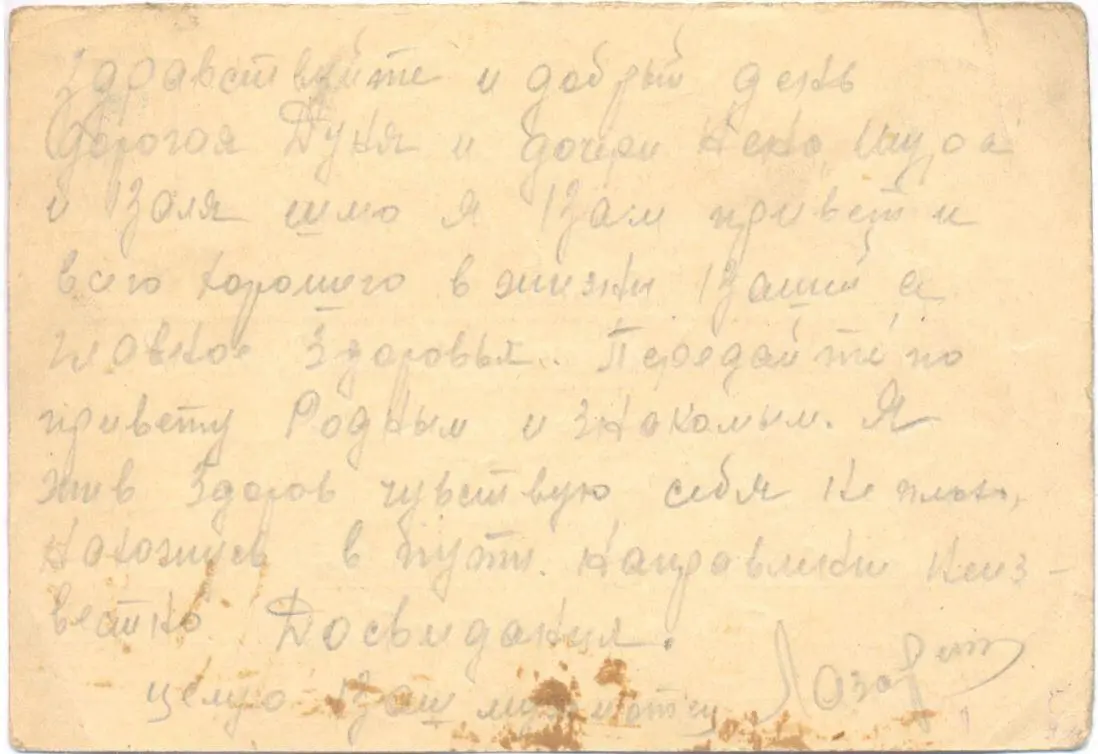 Здравствуйте и добрый день
дорогая Дуня и дочери Нена, Шура
и Валя шлю я Вам привет и
всего хорошего в жизни Вашей а
главное Здоровья. Передайте по
привету Родным и знакомым. Я
жив Здоров чувствую себя не плохо,
нахожусь в пути. направлении неиз-
вестно Досвидания.
целую Ваш муж и отец